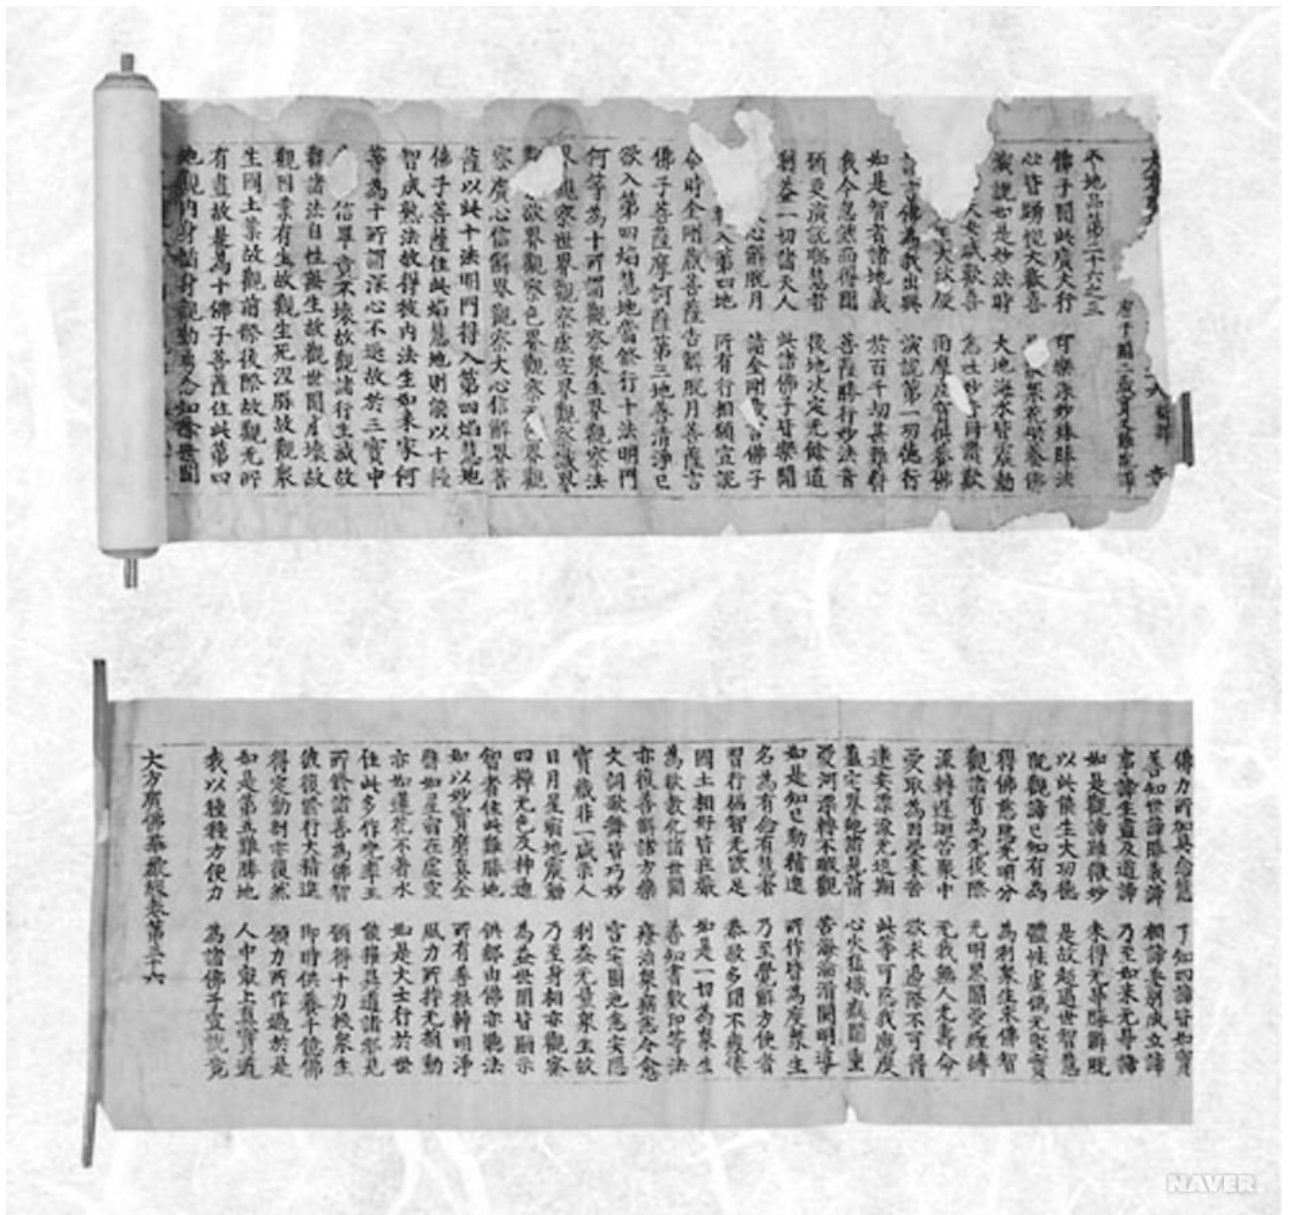 于闐三藏實叉難陀譯
十地品第二十六之三
佛子聞此廣大行 可樂深妙殊勝法
心皆踊悅大歡喜 眾花供養佛
演說如是妙法時 大地海水皆震動
天女咸歡喜 悉吐妙音同讚歎
大欣慶 雨摩尼寶供養佛
言佛為我出興 演說第一功德行
如是智者諸地義 於百千劫甚難得
我今忽然而得聞 菩薩勝行妙法音
願更演說聰慧者 後地決定无餘道
利益一切諸天人 此諸佛子皆樂聞
心解脫月 請金剛藏言佛子
入第四地 所有行相願宣說
尒時金剛藏菩薩告解脫月菩薩言
佛子菩薩摩訶薩第三地善清淨已
欲入第四焰慧地當修行十法明門
何等為十所謂觀察眾生界觀察法
界觀察世界觀察虛空界觀察識界
觀察欲界觀察色界觀察无色界觀
察廣心信解界觀察大心信解界菩
薩以此十法明門得入第四焰慧地
佛子菩薩住此焰慧地則能以十種
智成熟法故得彼內法生如來家何
等為十所謂深心不退故於三寶中
信畢竟不壞故觀諸行生滅故
觀諸法自性無生故觀世間成壞故
觀因業有生故觀生死涅槃故觀眾
生國土業故觀前際後際故觀无所
有盡故是為十佛子菩薩住此第四
地觀內身循身觀勤勇念知除世間
佛力所加具念慧 了知四諦皆如實
善知世諦勝義諦 相諦差別成立諦
事諦生盡及道諦 乃至如來无㝵諦
如是觀諦雖微妙 未得无㝵勝解脫
以此能生大功德 是故超過世智慧
既觀諦已知有為 體性虛偽无堅實
得佛慈愍光明分 為利眾生求佛智
觀諸有為先後際 无明黑闇愛纏縛
流轉遲迴苦聚中 无我無人无壽命
愛取為因受來苦 欲求邊際不可得
迷妄漂流无返期 此等可愍我應度
蘊宅界蛇諸見箭 心火猛熾癡闇重
愛河漂轉不暇觀 苦海淪湑闕明導
如是知已勤精進 所作皆為度眾生
名為有念有慧者 乃至覺解方便者
習行福智无猒足 恭敬多聞不疲倦
國土相好皆莊嚴 如是一切為眾生
為欲教化諸世間 善知書數印等法
亦復善解諸方藥 療治眾病悉令愈
文詞歌舞皆巧妙 宮宅園池悉安隱
寶藏非一咸示人 利益无量眾生故
日月星宿地震動 乃至身相亦觀察
四禪无色及神通 為益世間皆顯示
智者住此難勝地 供那由佛亦聽法
如以妙寶磨真金 所有善根轉明淨
譬如星宿在虛空 風力所持无損動
亦如蓮花不著水 如是大士行於世
住此多作兜率王 能摧異道諸邪見
所修諸善為佛智 願得十力救眾生
彼復修行大精進 即時供養千億佛
得定動剎亦復然 願力所作過於是
如是第五難勝地 人中最上真實道
我以種種方便力 為諸佛子宣說竟
大方廣佛華嚴經卷第三十六
NAVER